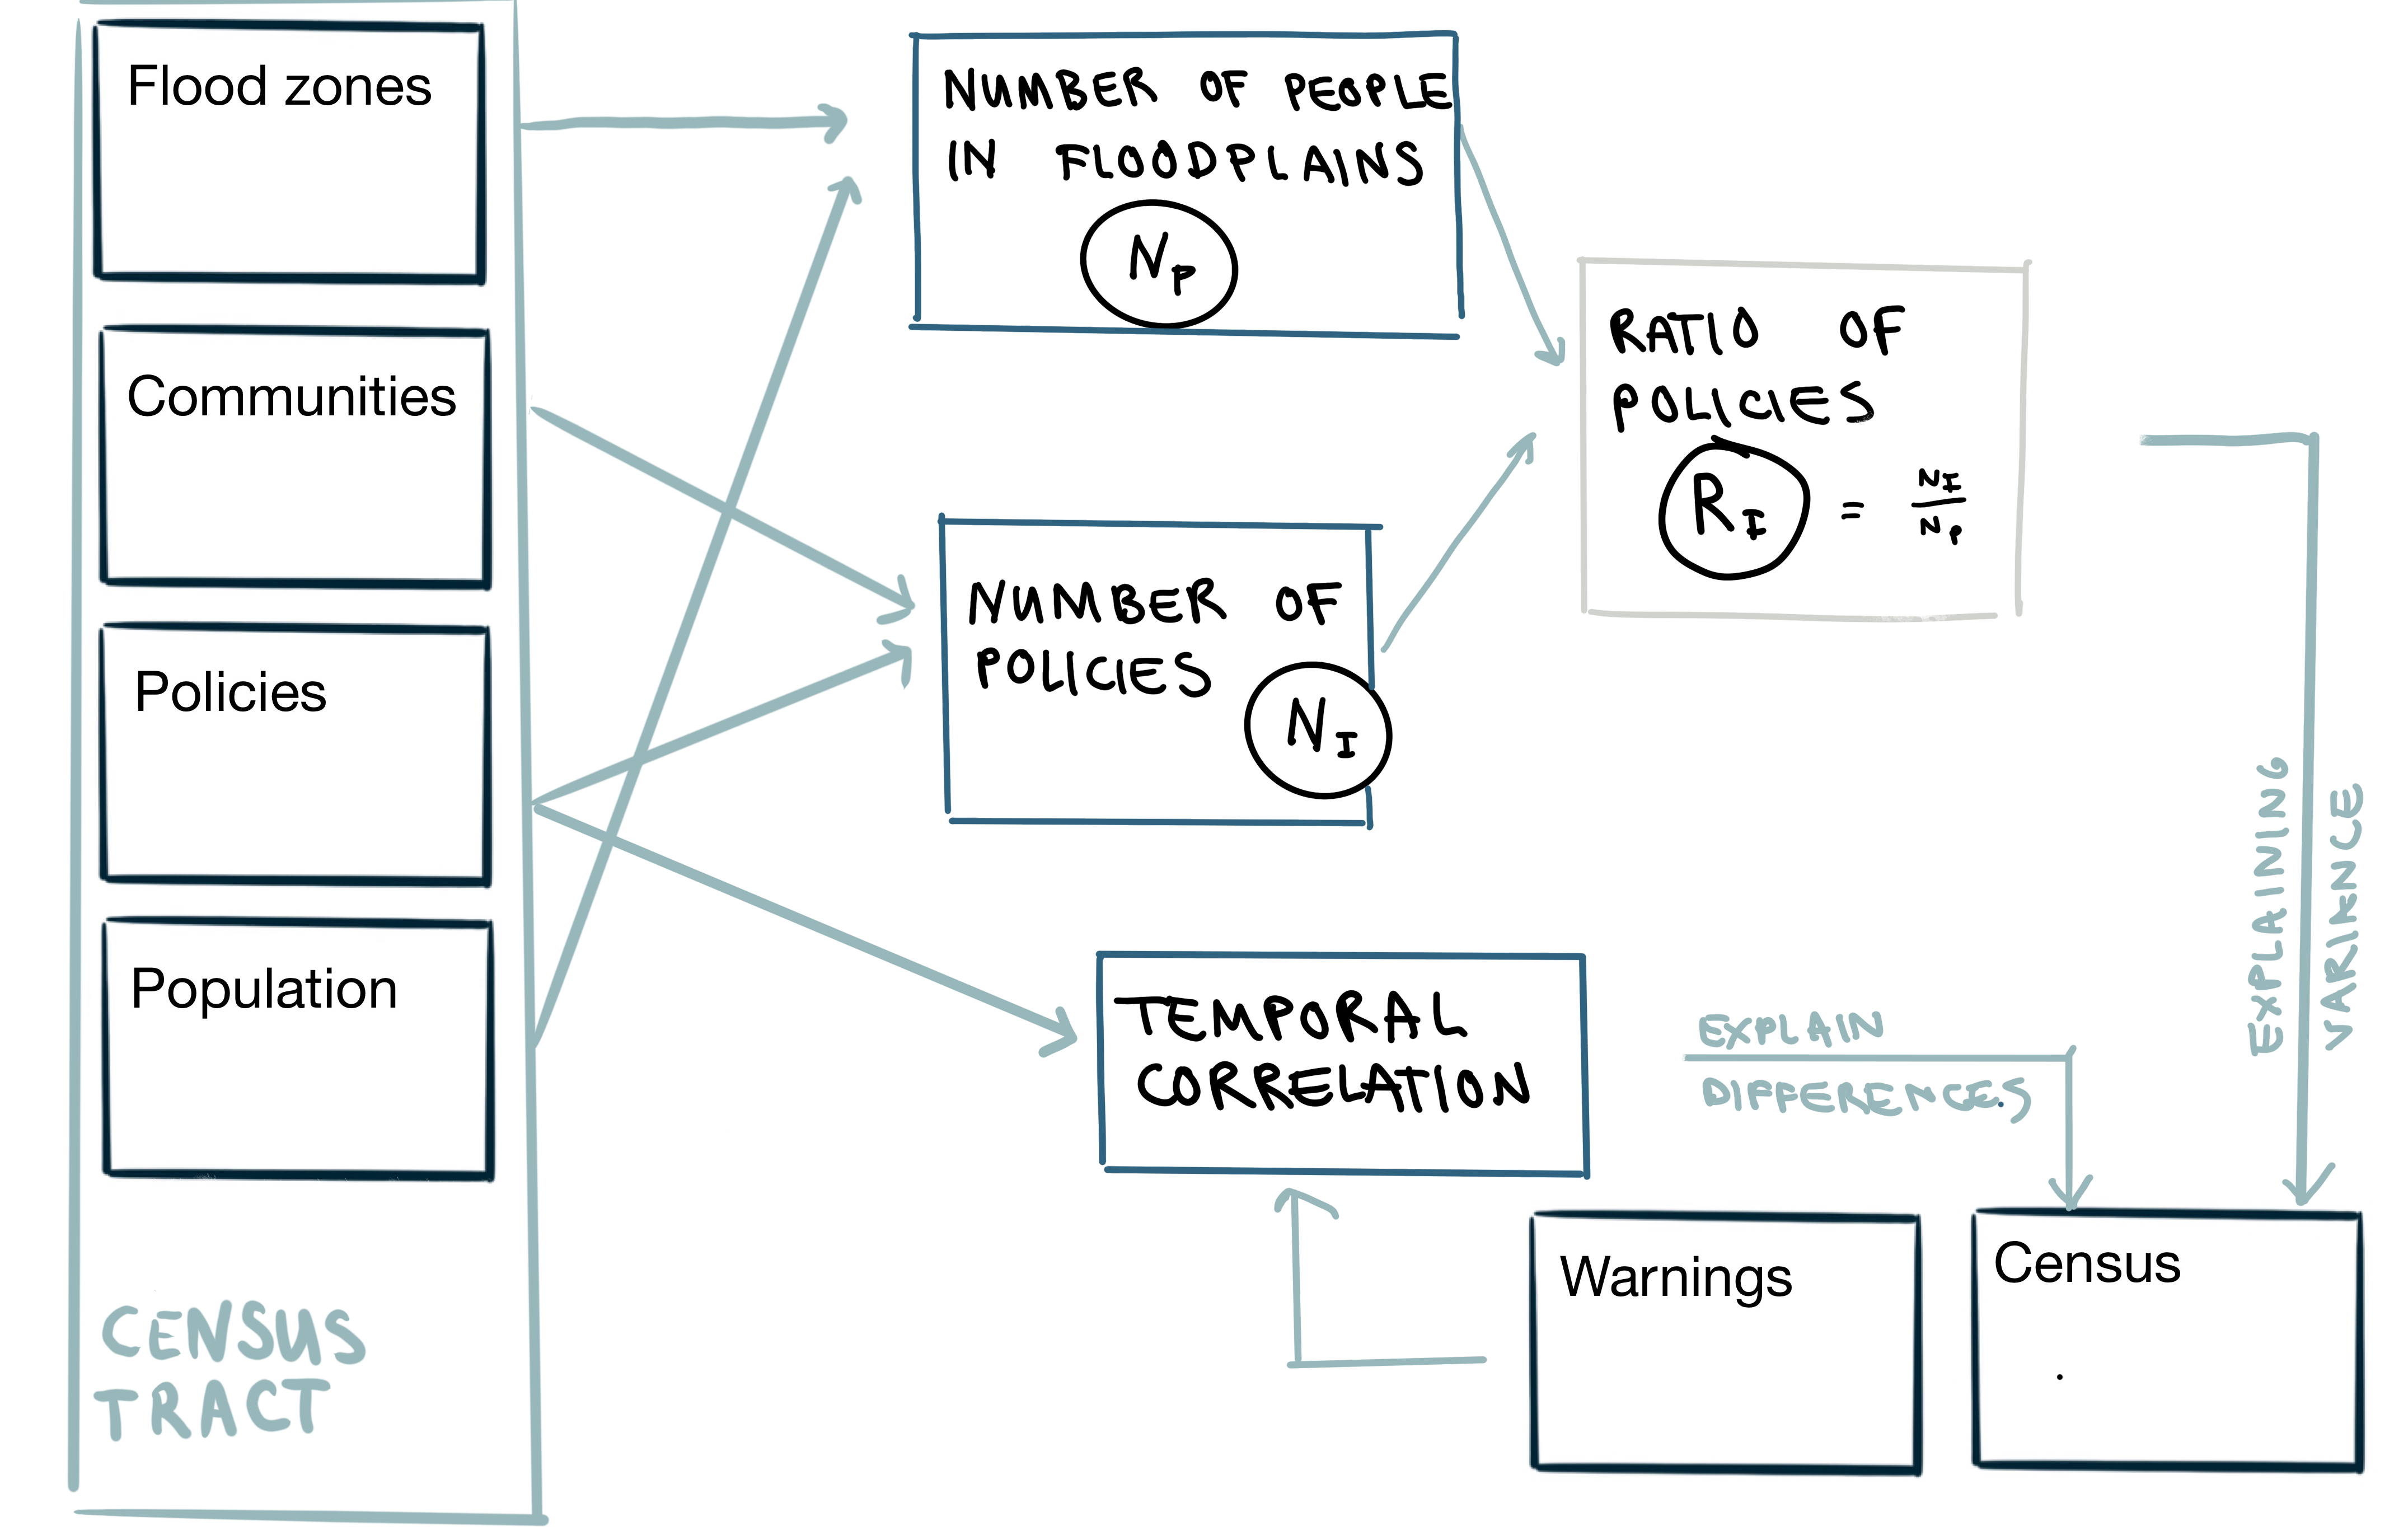 Flood zones
Communities
Policies
Population
CENSUS
TRACT
NUMBER OF PEOPLE
IN FLOODPLAINS
NP
NUMBER OF
POLICIES
NI
RATIO OF
POLICIES
RI = NI
NP
TEMPORAL
CORRELATION
EXPLAIN
DIFFERENCES
EXPLAINING
VARIANCE
Warnings
Census